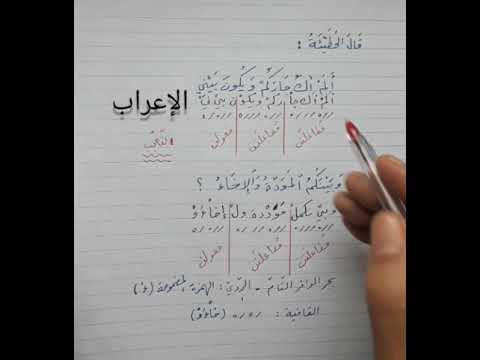 قَالَ الحُطَيْئَةُ :
أَلَمْ أَكُ جَارَكُمْ وَيَكُونَ بَيْنِي
أَلَمْ أَكُ جَا رَكُمْ وَيَكُوْنَ بَيْ نِيْ
الإعراب
مُفَاعَلَتُنْ مُفَاعَلَتُنْ فَعُولُنْ
وَبَيْنَكُمُ المَوَدَّةُ وَالإِخَاءُ ؟
وبي نكمل مَوَدْدة ول إِخَاْءُوْ
مُفَاعَلَتُنْ مُفَاعَلَتُنْ فَعُولُنْ
بحر الوافر التَّامّ - الرَّوِيّ : الهمزة المضمومة (ءُ)
القافية : /ه/ه (خَاْءُوْ)